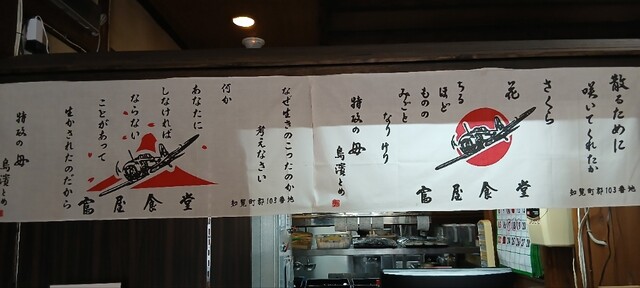 散るために
咲いてくれたか
さくら
花
ちる
ほど
ものの
みごと
なりけり
特攻の母
鳥濱とめ
富屋食堂
知覧町郡103番地
なぜ生きのこったのか
考えなさい
何か
あなたに
しなければ
ならない
ことがあって
生かされたのだから
特攻の母
鳥濱とめ
富屋食堂
知覧町郡103番地